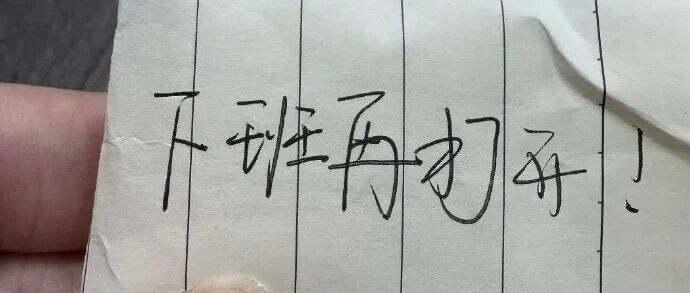 下班再打开!